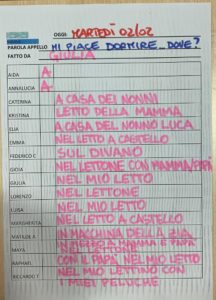 OGGI: MARTEDÌ 02/02
PAROLA APPELLO MI PIACE DORMIRE... DOVE?
FATTO DA GIULIA
AIDA A
ANNALUCIA A
CATERINA A CASA DEI NONNI
KRISTINA LETTO DELLA MAMMA
ELIA A CASA DEL NONNO LUCA
EMMA NEL LETTO A CASTELLO
FEDERICO C SUL DIVANO
GIOIA NEL LETTONE CON MAMMA/PAPÀ
GIULIA NEL MIO LETTO
LORENZO NEL LETTONE
LUISA NEL MIO LETTO
MARGHERITA NEL LETTO A CASTELLO
MATILDE A IN MACCHINA DELLA ZIA
MAYA IN MEZZO A MAMMA E PAPÀ NEL LETTONE
RAPHAEL CON IL PAPÀ NEL MIO LETTO
RICCARDO T NEL MIO LETTINO CON
I MIEI PELUCHE